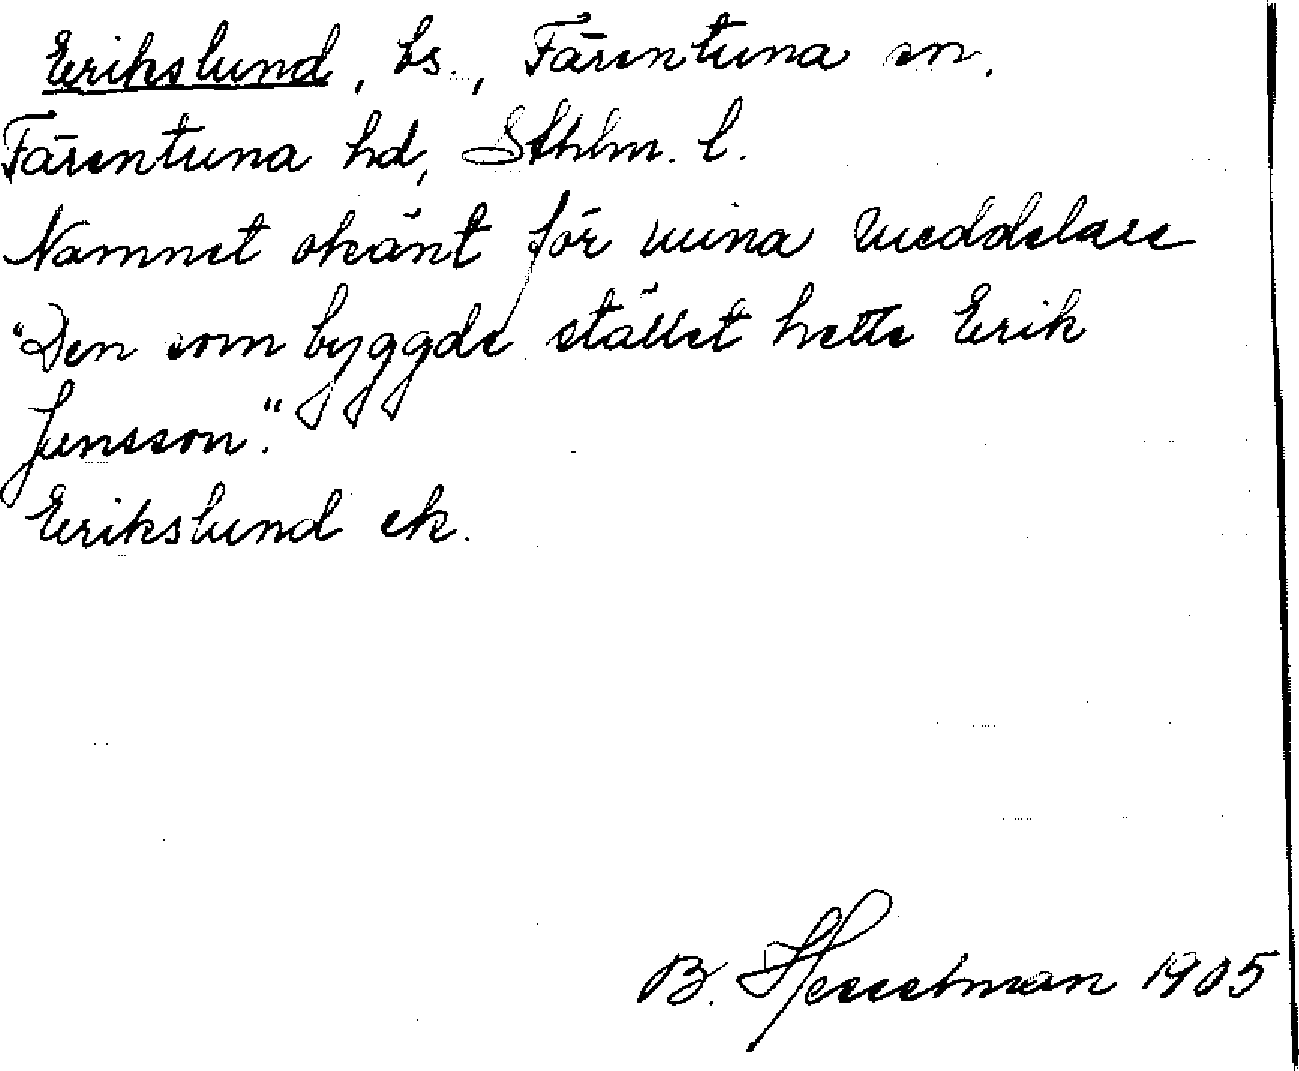 Erikslund, bs., Färentuna sn.
Färentuna hd, Sthlm. l.
Namnet okänt för mina meddelare
"Den som byggde stället hette Erik
Jansson."
Erikslund ek.
B. Hesselman 1905